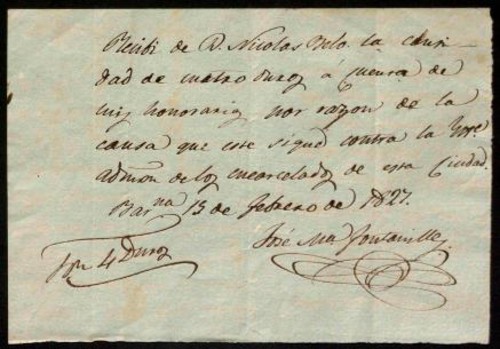 Recibi de D. Nicolas Belo la canti
dad de cuatro duros á cuenta de
mis honorarios por razon de la
causa que este sigue contra la Ille.
admon de los encarcelados de esta Ciudad.
Bar.na 13 de febrero de 1827.
José Ma Fontanills
Son 4 Duros